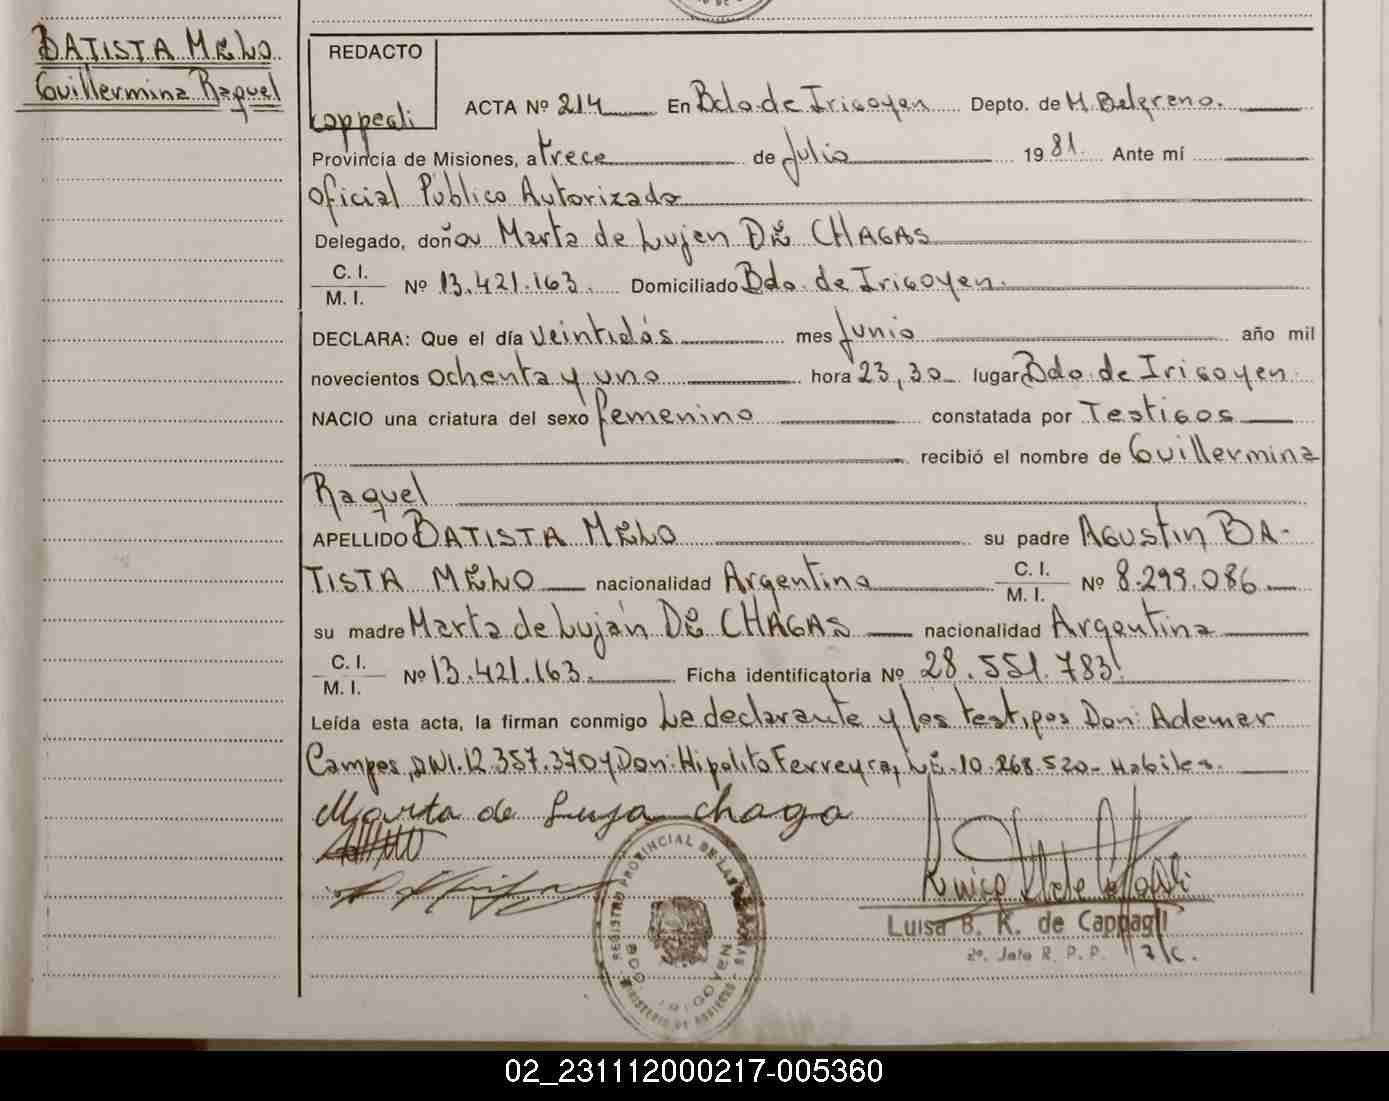 BATISTA MELO
Guillermina Raquel
REDACTO
Cappagli
ACTA Nº 214 En Bdo. de Irigoyen Depto. de M. Belgrano.
Provincia de Misiones, a trece de Julio 19 81. Ante mí
Oficial Público Autorizado
Delegado, doña Marta de Luján DE CHAGAS
C. I.
M. I. Nº 13.421.163. Domiciliado Bdo. de Irigoyen.
DECLARA: Que el día veintidós mes Junio año mil
novecientos ochenta y uno hora 23,30 lugar Bdo de Irigoyen.
NACIO una criatura del sexo femenino constatada por Testigos
recibió el nombre de Guillermina
Raquel
APELLIDO BATISTA MELO su padre Agustin BA-
TISTA MELO nacionalidad Argentina C. I.
M. I. Nº 8.299.086
su madre Marta de Luján DE CHAGAS nacionalidad Argentina
C. I.
M. I. Nº 13.421.163. Ficha identificatoria Nº 28.551.783!
Leída esta acta, la firman conmigo La declarante y los testigos Don: Ademar
Campos, DNI.12.357.370 y Don: Hipolito Ferreyra, LE.10.268.520- Habiles.
Marta de Luja chaga
REGISTRO PROVINCIAL DE LAS PERSONAS
BDO. IRIGOYEN
MINISTERIO DE GOBIERNO
Luisa B. K. de Cappagli
2º. Jefe R. P. P. a/c.
02_231112000217-005360